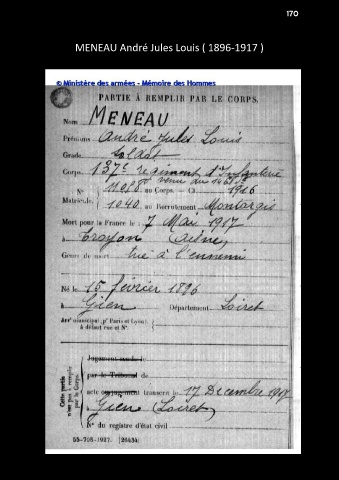 170
MENEAU André Jules Louis ( 1896-1917 )
© Ministère des armées - Mémoire des Hommes
PARTIE À REMPLIR PAR LE CORPS.
Nom MENEAU
Prénoms André Jules Louis
Grade soldat
Corps 137e régiment d'Infanterie
venu du 146e
N° 11088 au Corps. — Cl 1916
Matricule. 1040 au Recrutement Montargis
Mort pour la France le 7 Mai 1917
à Troyon (Aisne)
Genre de mort tué à l'ennemi
Né le 15 février 1896
à Gien Département Loiret
Arrt municipal (pr Paris et Lyon),
à défaut rue et N°.
Cette partie n'est pas à remplir par le Corps.
Jugement rendu le
par le Tribunal de
acte ou jugement transcrit le 17 Décembre 1917
à Gien (Loiret)
N° du registre d'état civil
55-708-1927. [26434]